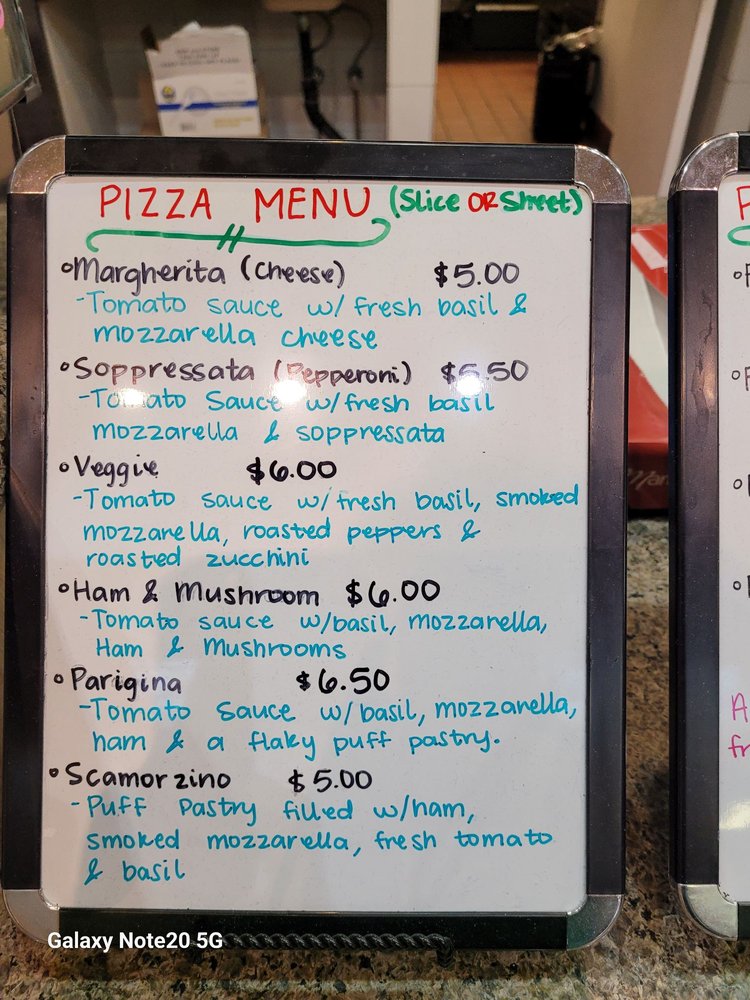 PIZZA MENU (Slice OR Street)
°Margherita (Cheese) $5.00
-Tomato sauce w/fresh basil &
mozzarella cheese
°Soppressata (Pepperoni) $5.50
-Tomato Sauce w/fresh basil
mozzarella & soppressata
°Veggie $6.00
-Tomato sauce w/fresh basil, smoked
mozzarella, roasted peppers &
roasted zucchini
°Ham & Mushroom $6.00
-Tomato sauce w/basil, mozzarella,
Ham & Mushrooms
°Parigina $6.50
-Tomato sauce w/basil, mozzarella,
ham & a flaky puff pastry.
°Scamorzino $5.00
-Puff Pastry filled w/ham,
smoked mozzarella, fresh tomato
& basil
Galaxy Note20 5G